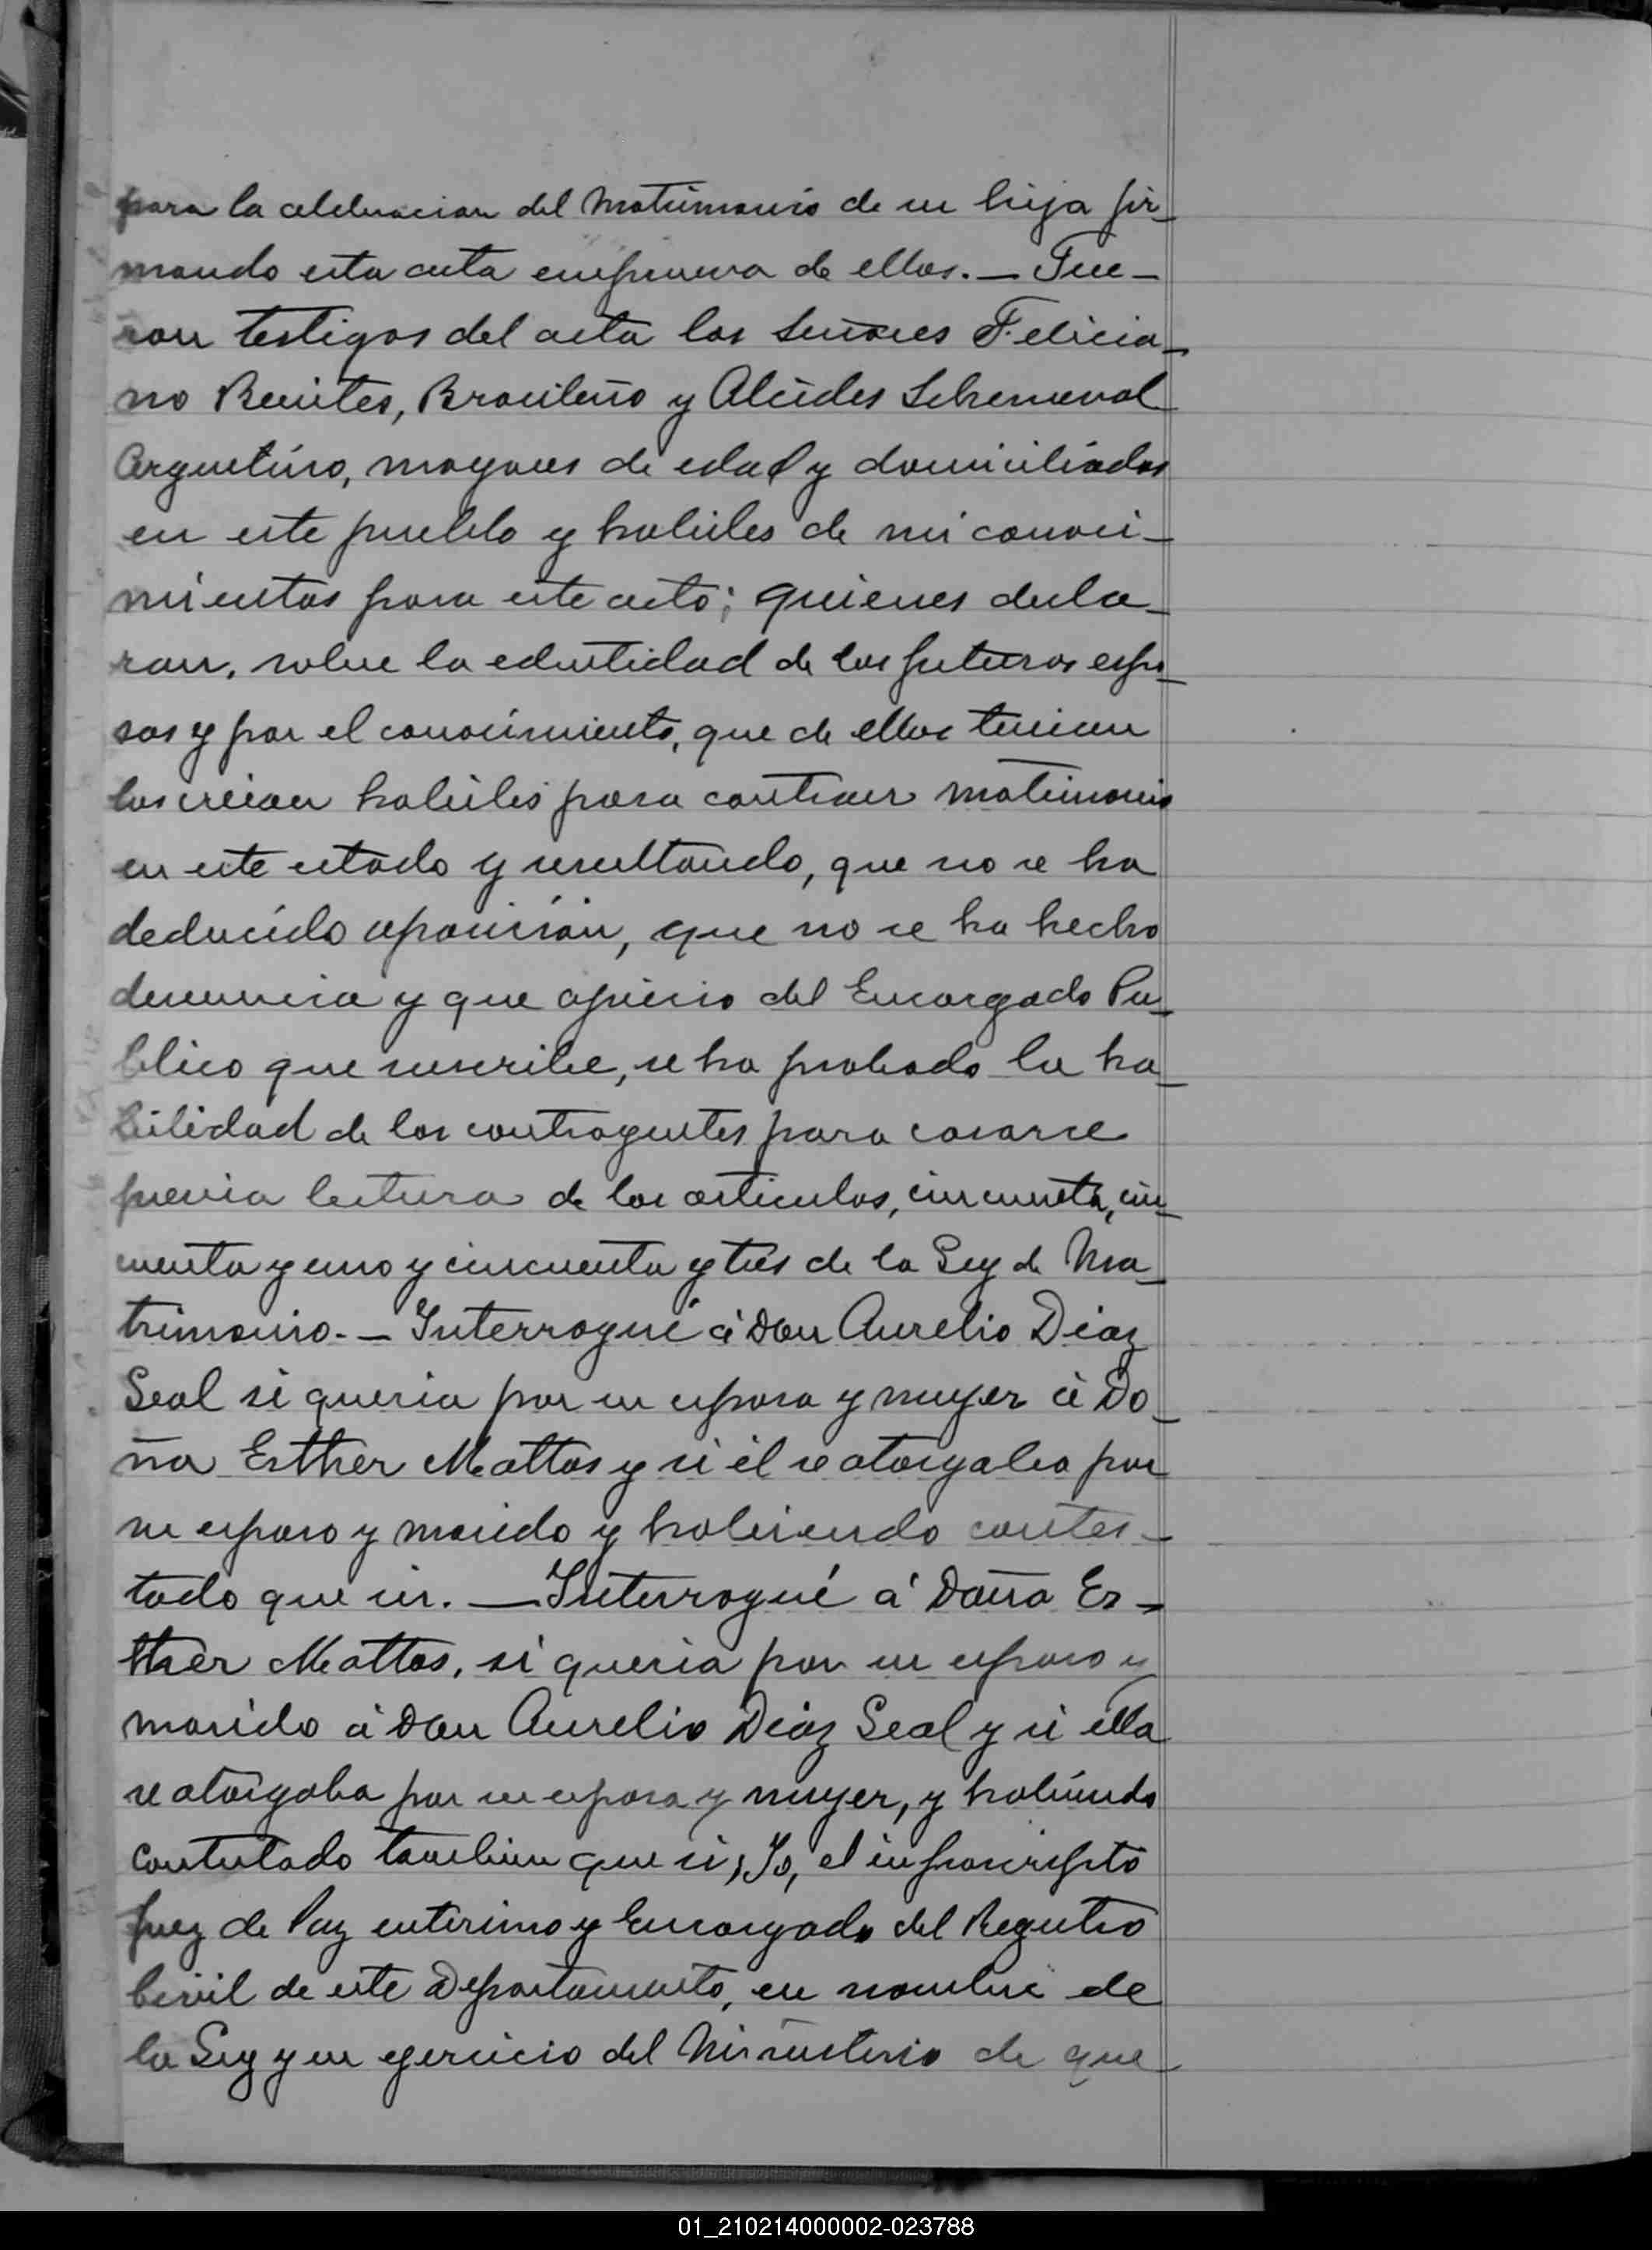 para la celebracion del Matrimonio de su hija fir-
mando esta acta en prueva de ellos. — Fue-
ron testigos del acta los Señores Felicia-
no Benites, Brasileño y Alcides
Argentino, mayores de edad y domiciliados
en este pueblo y habiles de mi conoci-
mientos para este acto; quienes decla-
ran, sobre la edentidad de los futuros espo-
sos y por el conocimiento, que de ellos tenian
los creian habiles para contraer matrimonio
en este estado y resultando, que no se ha
deducido oposicion, que no se ha hecho
denuncia y que ajuicio del Encargado Pu-
blico que suscribe, se ha probado la ha-
bilidad de los contragentes para casarse
previa lectura de los articulos, cincuenta, cin-
cuenta y uno y cincuenta y tres de la Ley de Ma-
trimonio. — Interrogué á Don Aurelio Diaz
Leal si queria por su esposa y muger á Do-
ña Esther Mattos y si él se otorgaba por
su esposo y marido y habiendo contes-
tado que si. — Interrogué á Doña Es-
ther Mattos, si queria por su esposo y
marido á Don Aurelio Diaz Leal y si ella
se otorgaba por su esposa y muger, y habiendo
contestado tambien que si; Yo, el infrascripto
Juez de Paz enterino y Encargado del Registro
Civil de este Departamento, en nombre de
la Ley y en egercicio del Ministerio de que
01_210214000002-023788